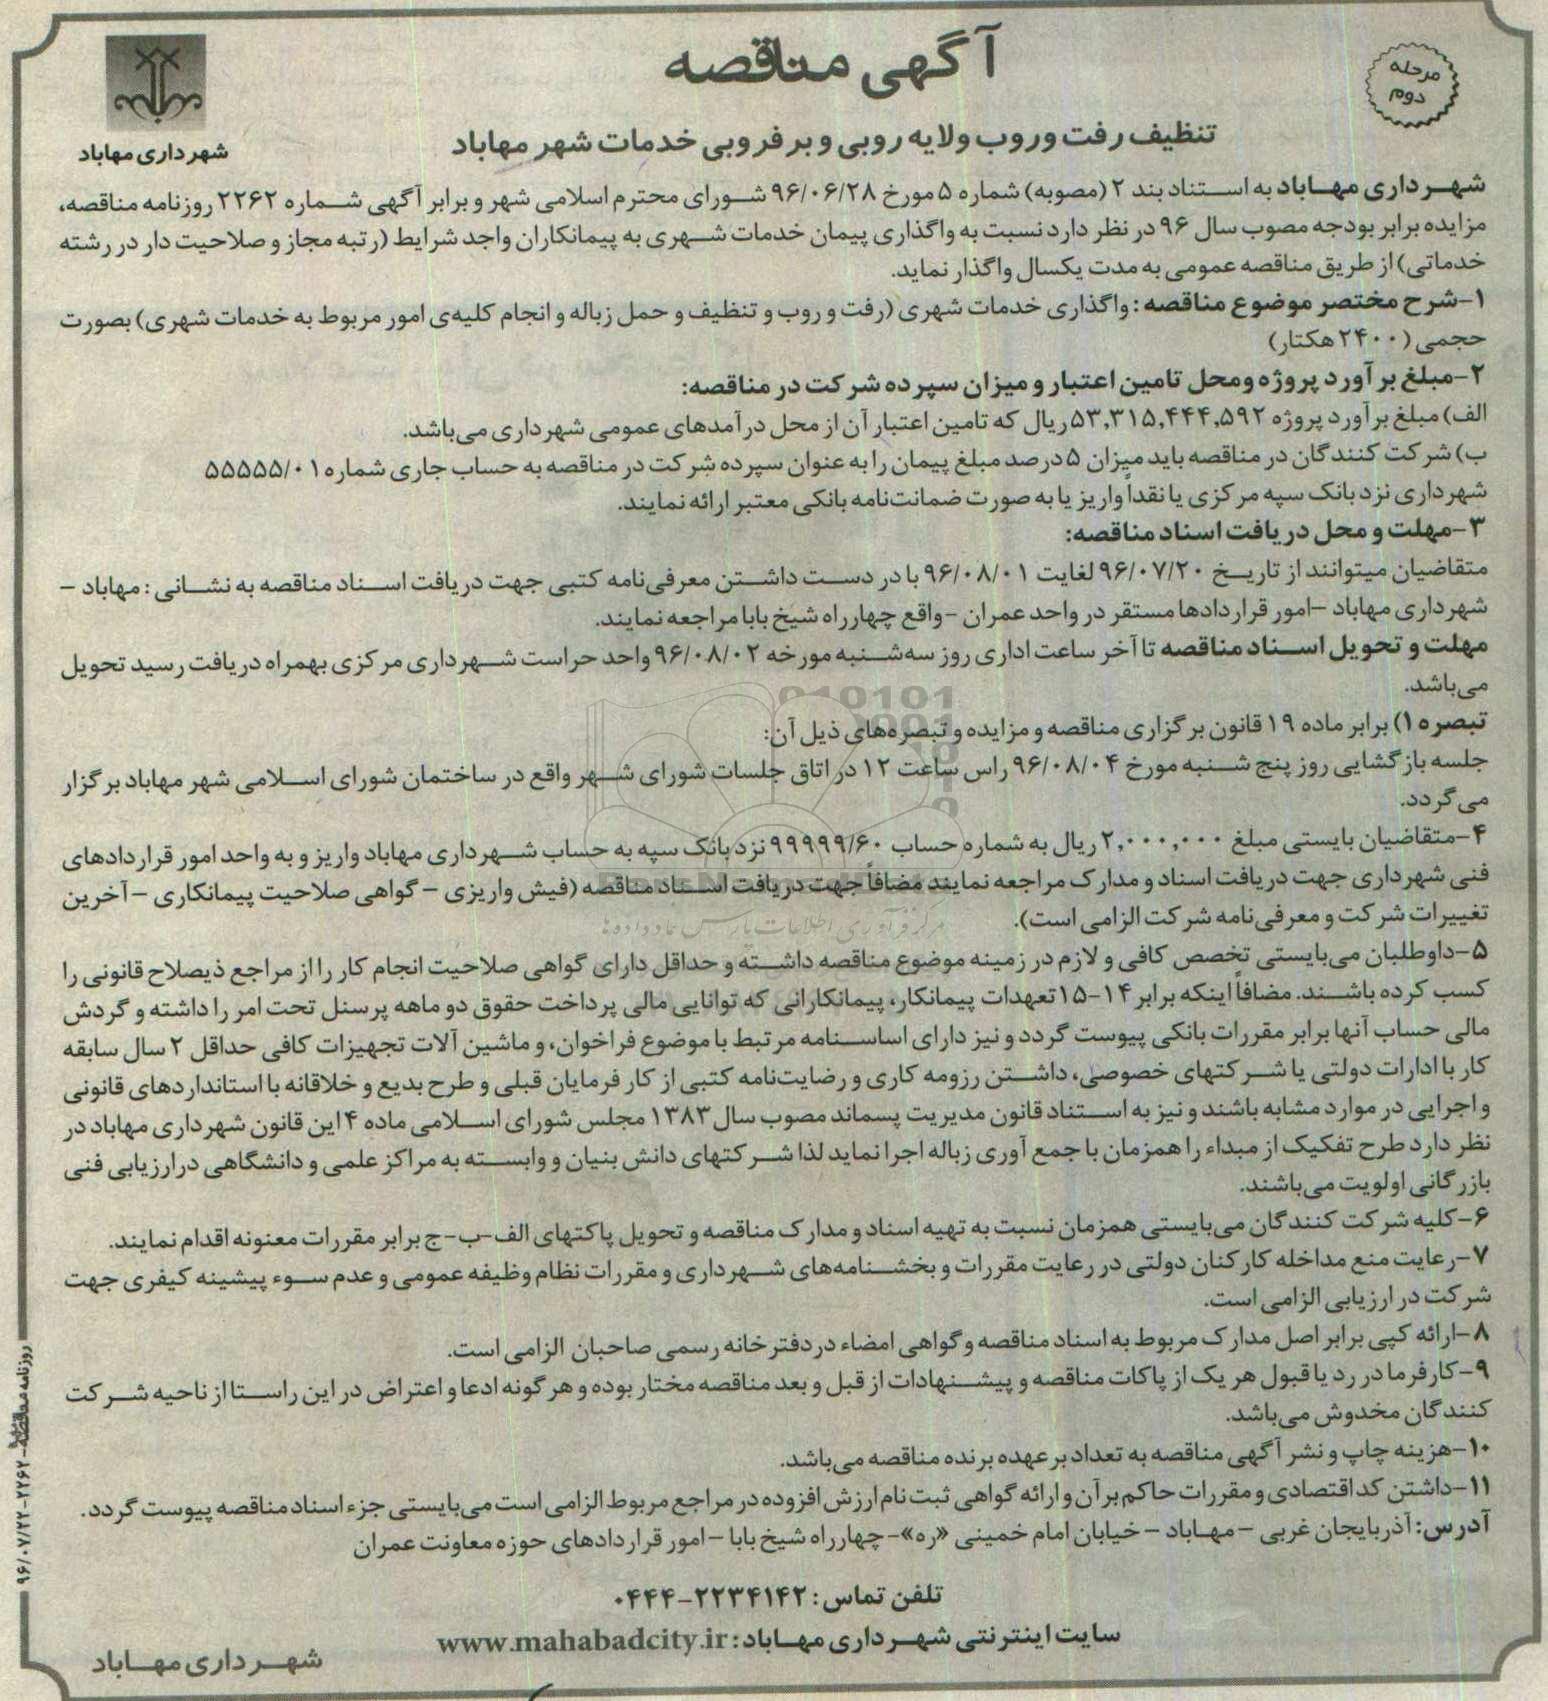 آگهی مناقصه
مرحله
دوم
شهرداری مهاباد
تنظیف رفت وروب ولایه روبی و برفروبی خدمات شهر مهاباد
شهـرداری مهـاباد به اسـتناد بند ۲ (مصوبه) شماره ۵ مورخ ۹۶/۰۶/۲۸ شـورای محترم اسلامی شهر و برابر آگهی شـماره ۲۲۶۲ روزنامه مناقصه،
مزایده برابر بودجه مصوب سال ۹۶ در نظر دارد نسبت به واگذاری پیمان خدمات شـهری به پیمانکاران واجد شرایط (رتبه مجاز و صلاحیت دار در رشته
خدماتی) از طریق مناقصه عمومی به مدت یکسال واگذار نماید.
۱-شرح مختصر موضوع مناقصه : واگذاری خدمات شهری (رفت و روب و تنظیف و حمل زباله و انجام کلیه‌ی امور مربوط به خدمات شهری) بصورت
حجمی (۲۴۰۰ هکتار)
۲-مبلغ برآورد پروژه ومحل تامین اعتبار و میزان سپرده شرکت در مناقصه:
الف) مبلغ برآورد پروژه ۵۳,۳۱۵,۴۴۴,۵۹۲ ریال که تامین اعتبار آن از محل درآمدهای عمومی شهرداری می‌باشد.
ب) شرکت کنندگان در مناقصه باید میزان ۵ درصد مبلغ پیمان را به عنوان سپرده شرکت در مناقصه به حساب جاری شماره ۵۵۵۵۵/۰۱
شهرداری نزد بانک سپه مرکزی یا نقداً واریز یا به صورت ضمانت‌نامه بانکی معتبر ارائه نمایند.
۳-مهلت و محل دریافت اسناد مناقصه:
متقاضیان میتوانند از تاریـخ ۹۶/۰۷/۲۰ لغایت ۹۶/۰۸/۰۱ با در دسـت داشـتن معرفی‌نامه کتبی جهت دریافت اسـناد مناقصه به نشـانی : مهاباد -
شهرداری مهاباد -امور قراردادها مستقر در واحد عمران -واقع چهارراه شیخ بابا مراجعه نمایند.
مهلت و تحویل اسـناد مناقصه تا آخر ساعت اداری روز سه‌شـنبه مورخه ۹۶/۰۸/۰۲ واحد حراست شـهرداری مرکزی بهمراه دریافت رسید تحویل
می‌باشد.
تبصره ۱) برابر ماده ۱۹ قانون برگزاری مناقصه و مزایده و تبصره‌های ذیل آن:
جلسه بازگشایی روز پنج شـنبه مورخ ۹۶/۰۸/۰۴ راس ساعت ۱۲ در اتاق جلسات شورای شـهر واقع در ساختمان شورای اسـلامی شهر مهاباد برگزار
می‌گردد.
۴-متقاضیان بایستی مبلغ ۲,۰۰۰,۰۰۰ ریال به شماره حساب ۹۹۹۹۹/۶۰ نزد بانک سپه به حساب شـهرداری مهاباد واریز و به واحد امور قراردادهای
فنی شهرداری جهت دریافت اسناد و مدارک مراجعه نمایند مضافاً جهت دریافت اسـناد مناقصه (فیش واریزی - گواهی صلاحیت پیمانکاری - آخرین
تغییرات شرکت و معرفی‌نامه شرکت الزامی است).
مرکز فرآوری اطلاعات پارس نماد داده‌ها
۵-داوطلبان می‌بایستی تخصص کافی و لازم در زمینه موضوع مناقصه داشـته و حداقل دارای گواهی صلاحیت انجام کار را از مراجع ذیصلاح قانونی را
کسب کرده باشـند. مضافاً اینکه برابر ۱۴-۱۵ تعهدات پیمانکار، پیمانکارانی که توانایی مالی پرداخت حقوق دو ماهه پرسنل تحت امر را داشته و گردش
مالی حساب آنها برابر مقررات بانکی پیوست گردد و نیز دارای اساسـنامه مرتبط با موضوع فراخوان، و ماشین آلات تجهیزات کافی حداقل ۲ سال سابقه
کار با ادارات دولتی یا شـرکتهای خصوصی، داشـتن رزومه کاری و رضایت‌نامه کتبی از کارفرمایان قبلی و طرح بدیع و خلاقانه با استانداردهای قانونی
و اجرایی در موارد مشابه باشند و نیز به اسـتناد قانون مدیریت پسماند مصوب سال ۱۳۸۳ مجلس شورای اسـلامی ماده ۴ این قانون شهرداری مهاباد در
نظر دارد طرح تفکیک از مبداء را همزمان با جمع آوری زباله اجرا نماید لذا شـرکتهای دانش بنیان و وابسـته به مراکز علمی و دانشگاهی درارزیابی فنی
بازرگانی اولویت می‌باشند.
۶-کلیه شرکت کنندگان می‌بایستی همزمان نسبت به تهیه اسناد و مدارک مناقصه و تحویل پاکتهای الف-ب-ج برابر مقررات معنونه اقدام نمایند.
۷-رعایت منع مداخله کارکنان دولتی در رعایت مقررات و بخشـنامه‌های شـهرداری و مقررات نظام وظیفه عمومی و عدم سـوء پیشینه کیفری جهت
شرکت در ارزیابی الزامی است.
۸-ارائه کپی برابر اصل مدارک مربوط به اسناد مناقصه و گواهی امضاء در دفترخانه رسمی صاحبان الزامی است.
۹-کارفرما در رد یا قبول هر یک از پاکات مناقصه و پیشـنهادات از قبل و بعد مناقصه مختار بوده و هرگونه ادعا و اعتراض در این راسـتا از ناحیه شـرکت
کنندگان مخدوش می‌باشد.
۱۰-هزینه چاپ و نشر آگهی مناقصه به تعداد برعهده برنده مناقصه می‌باشد.
۱۱-داشتن کد اقتصادی و مقررات حاکم برآن و ارائه گواهی ثبت نام ارزش افزوده در مراجع مربوط الزامی است می‌بایستی جزء اسناد مناقصه پیوست گردد.
آدرس: آذربایجان غربی - مهـاباد - خیابان امام خمینی «ره»- چهارراه شیخ بابا - امور قراردادهای حوزه معاونت عمران
تلفن تماس : ۰۴۴۴-۲۲۳۴۱۴۲
سایت اینترنتی شهـرداری مهـاباد : www.mahabadcity.ir
شهـرداری مهـاباد
روزنامه مناقصه - ۲۲۶۲ - ۹۶/۰۷/۲۲